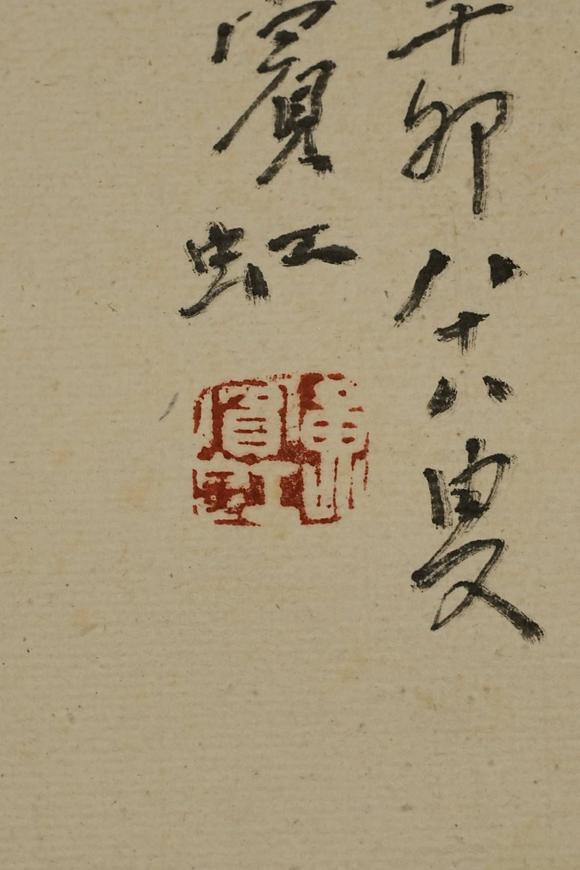 辛卯八十八叟
賓虹
黃賓虹